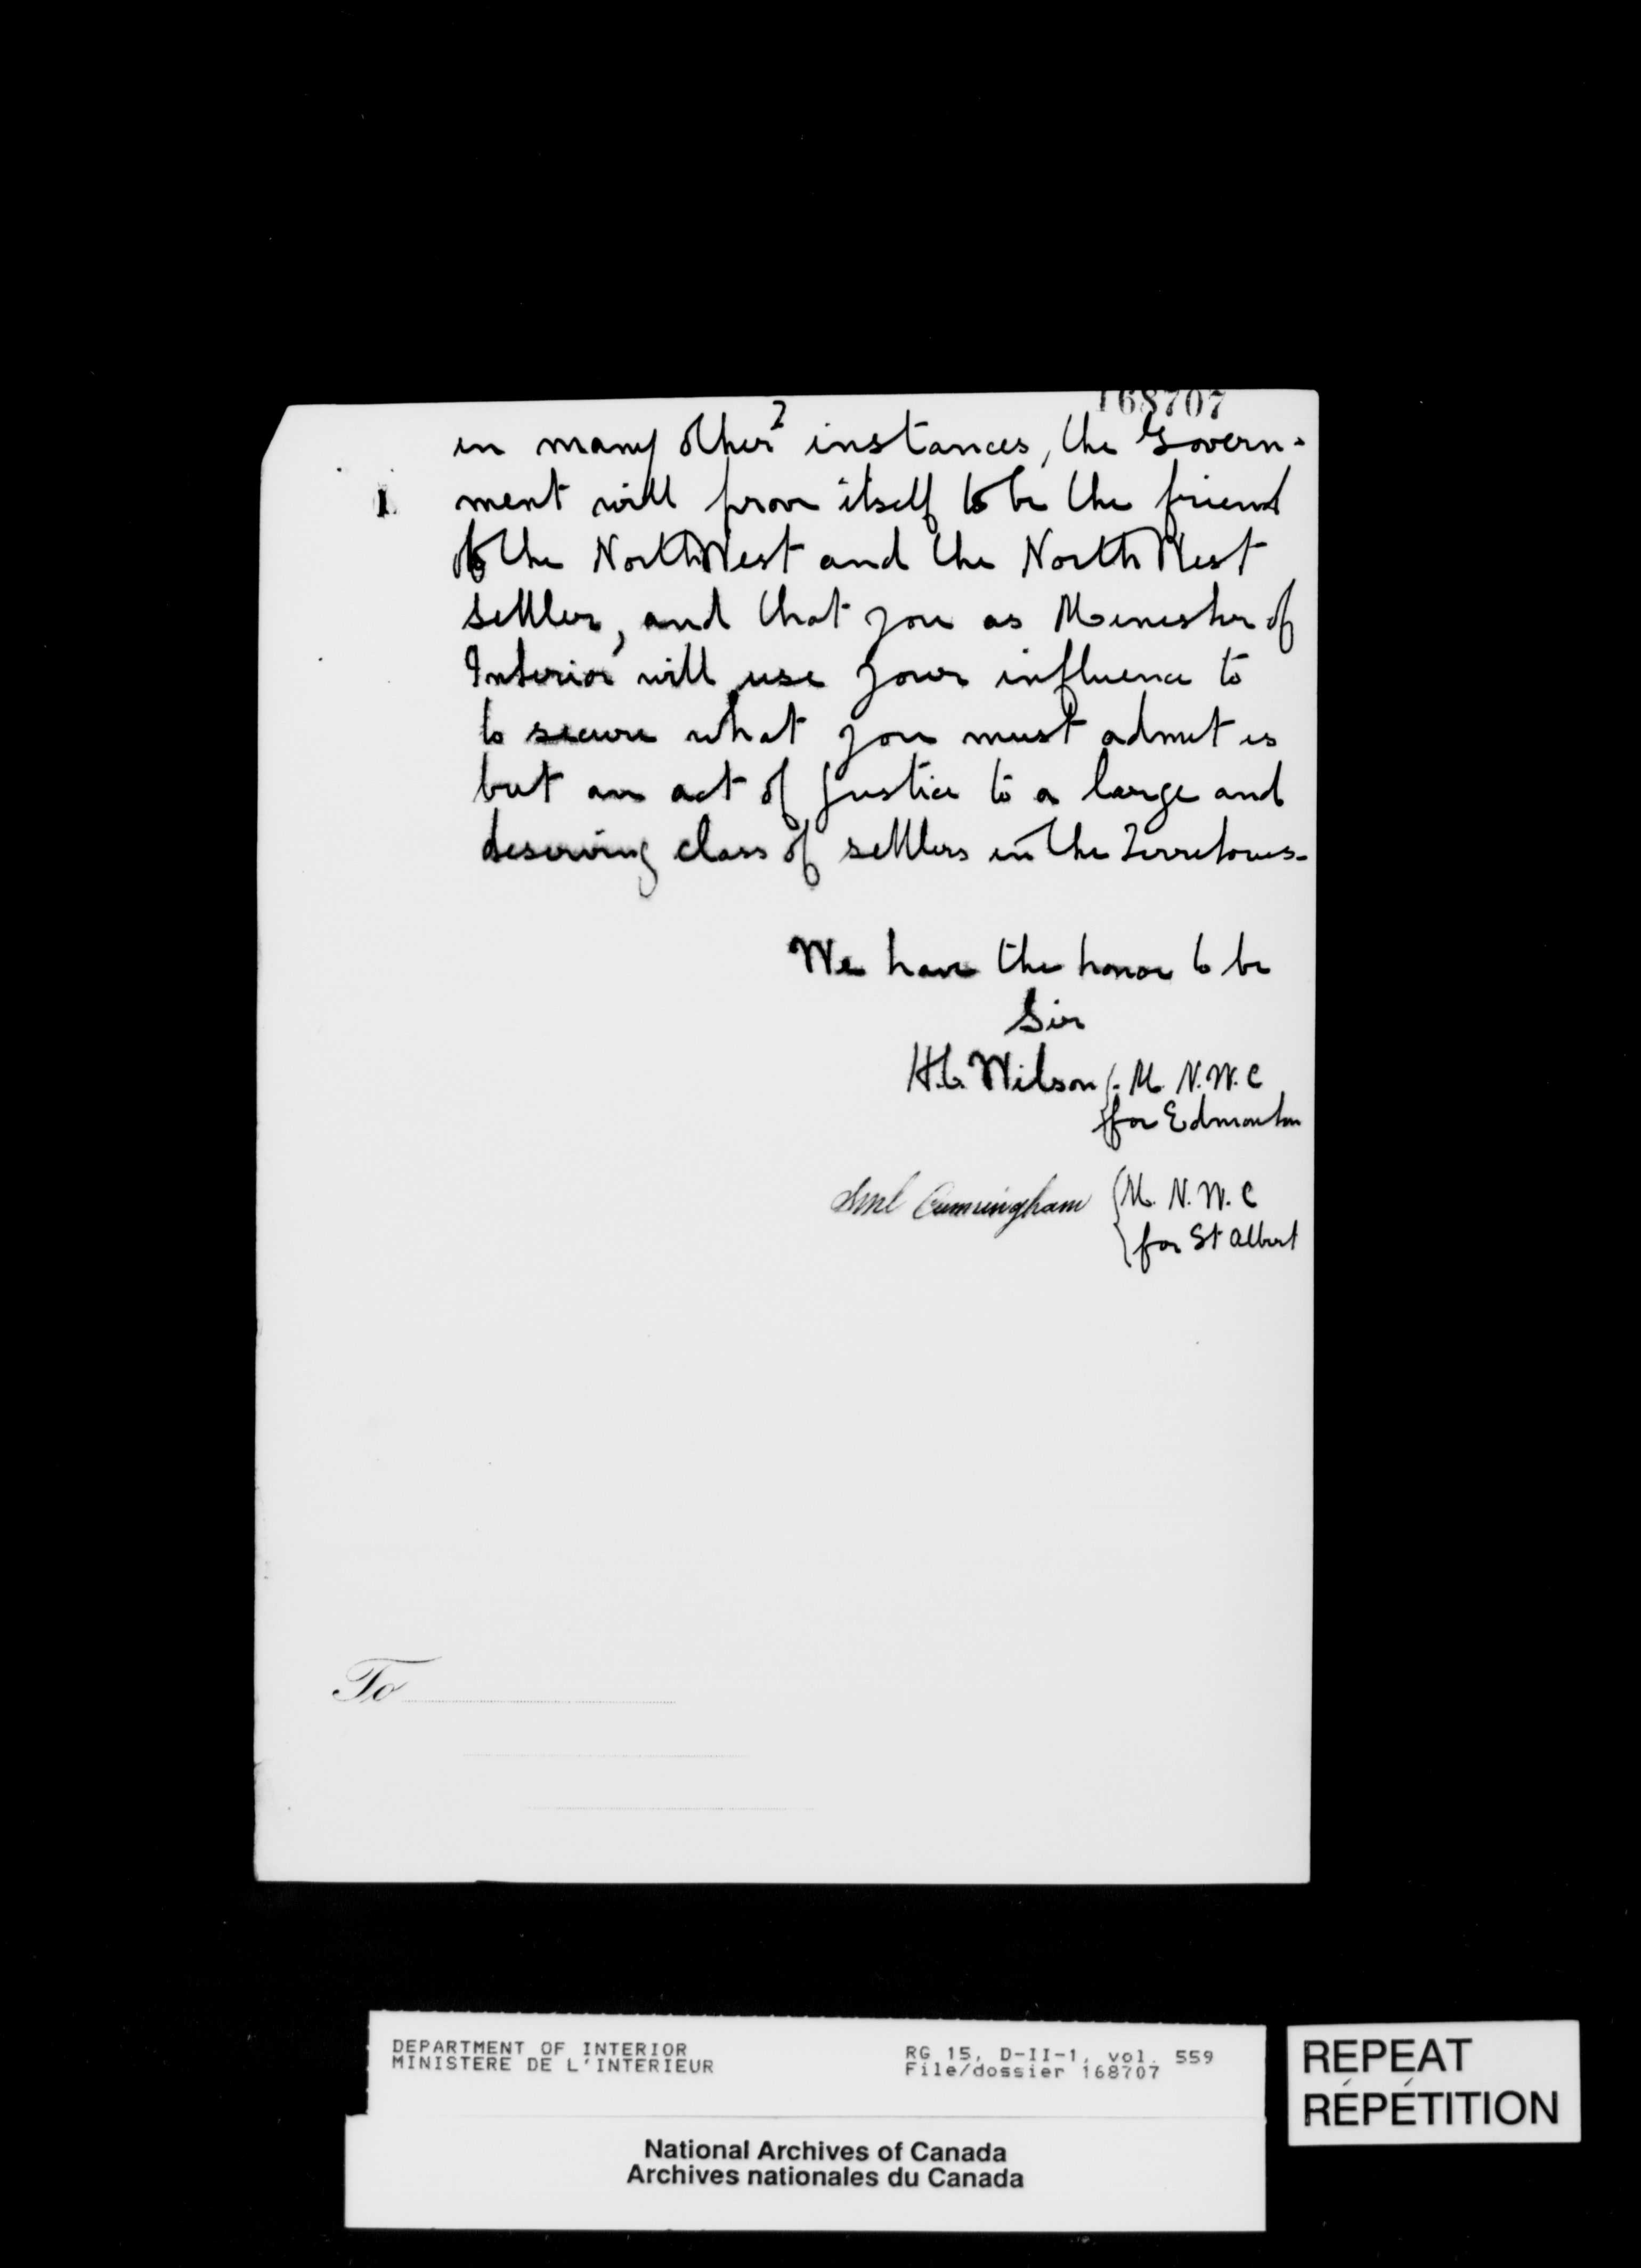 168707
2
in many other instances, the Govern-
ment will prove itself to be the friend
of the North West and the North West
settler, and that you as Minister of
Interior will use your influence to
to secure what you must admit is
but an act of justice to a large and
deserving class of settlers in the Territories-
We have the honor to be
Sir
H.C. Wilson {. M. N.W.C
for Edmonton
Saml Cunningham { M. N.W.C
for St Albert
To
DEPARTMENT OF INTERIOR
MINISTERE DE L'INTERIEUR
RG 15, D-II-1, vol. 559
File/dossier 168707
National Archives of Canada
Archives nationales du Canada
REPEAT
RÉPÉTITION